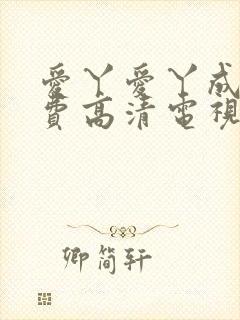 愛丫愛丫成
費高清電視
卿簡軒